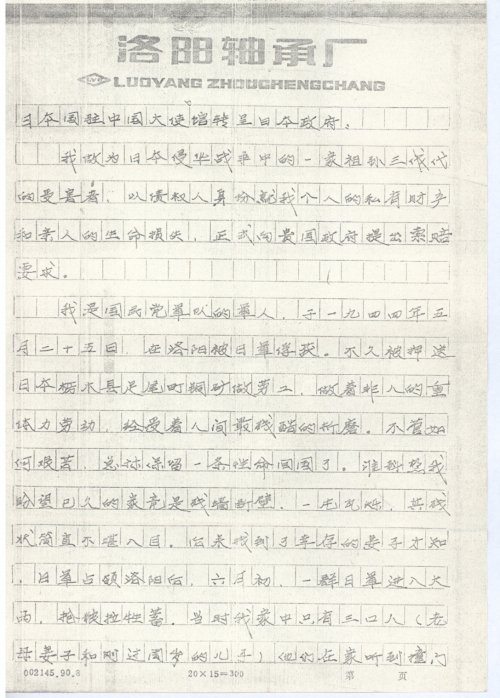 洛阳轴承厂
LUOYANG ZHOUCHENGCHANG
日本国驻中国大使馆转呈日本政府。
我做为日本侵华战争中的一家祖孙三代代
的受害者，以债权人身份就我个人的私有财产
和亲人的生命损失，正式向贵国政府提出索赔
要求。
我是国民党军队的军人，于一九四四年五
月二十五日，在洛阳被日军俘获。不久被押送
日本栃木县足尾町铜矿做劳工，做着非人的重
体力劳动，经受着人间最残酷的折磨。不管如
何艰苦，总算保留一条性命回国了。谁料想我
盼望已久的家竟是残墙断壁，一片瓦砾，其残
状简直不堪入目。后来找到了幸存的妻子才知
，日军占领洛阳后，六月初，一群日军进入大
西，抢粮拉牲蓄，当时我家中只有三口人（老
母妻子和刚过周岁的儿子）他们在家听到撞门
002145.90.8
20×15=300
第 页